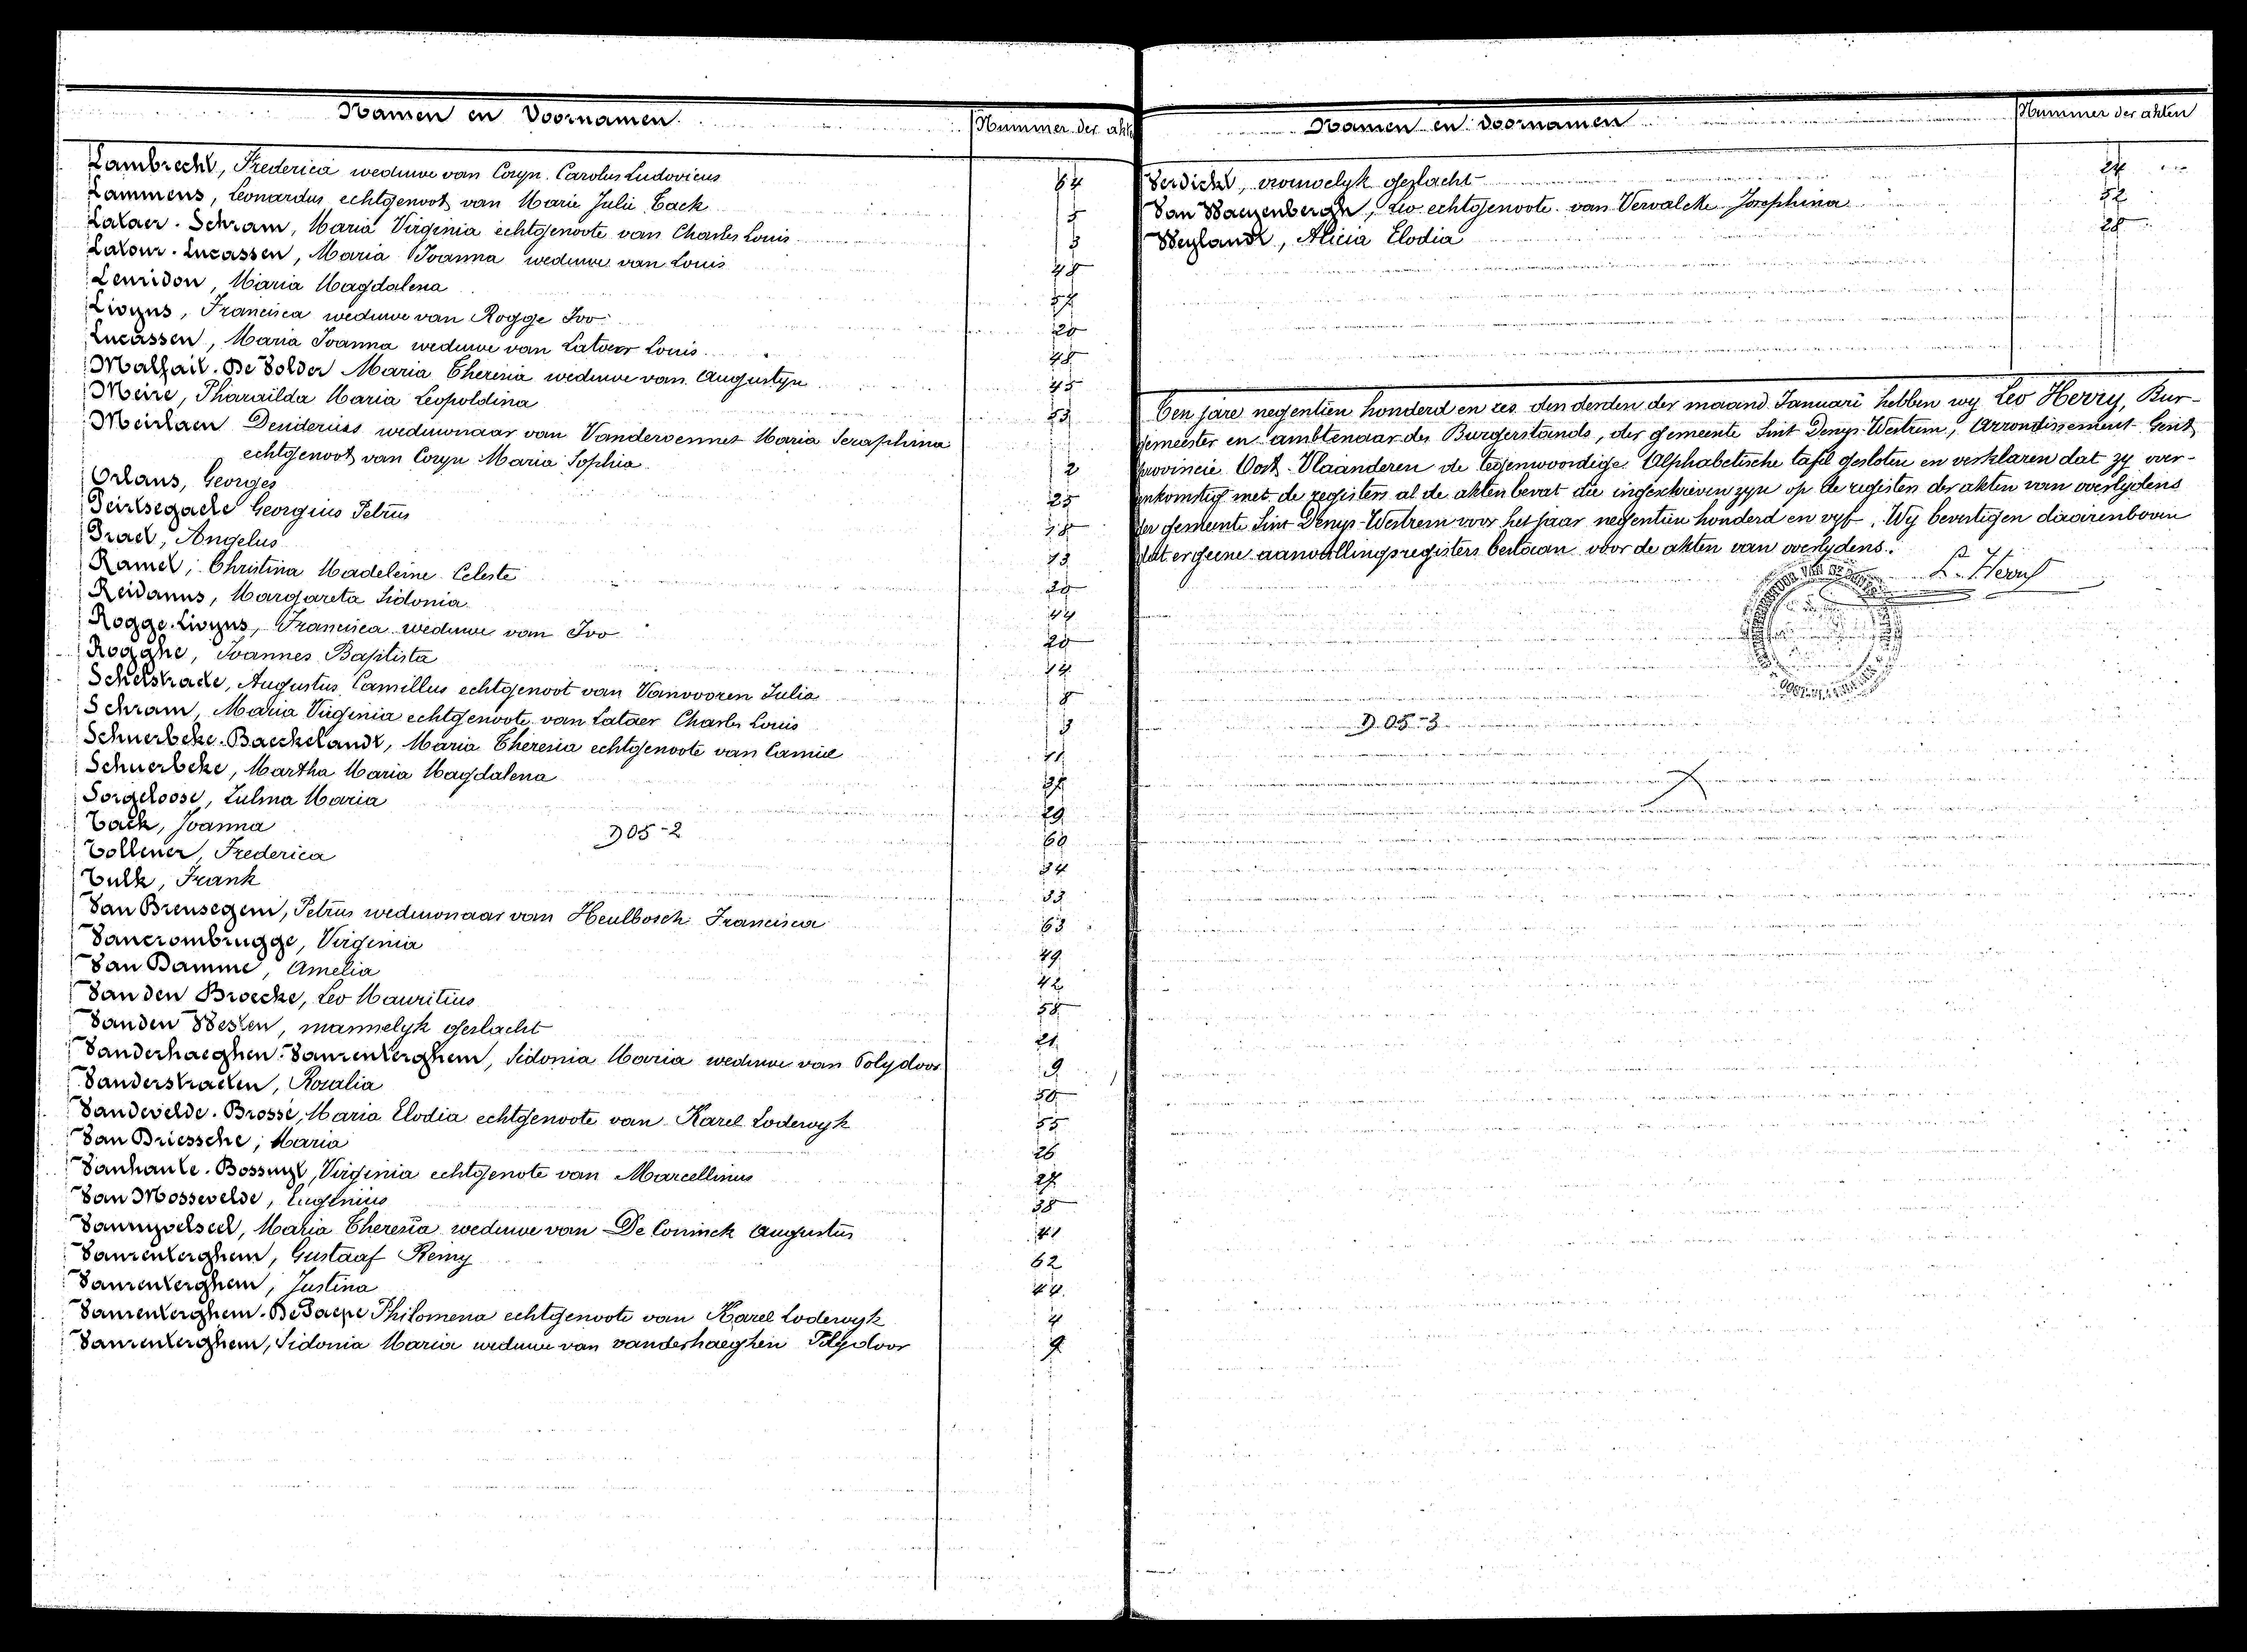 Namen en Voornamen
Nummer der akten
Lambrecht, Frederica weduwe van Coryn Carolus Ludovicus 64
Lammens, Leonardus echtgenoot van Marie Julie Tack 5
Lataer-Schram, Maria Virginia echtgenoote van Charles Louis 3
Latour-Lucassen, Maria Joanna weduwe van Louis 48
Lemidon, Maria Magdalena 57
Livyns, Francisca weduwe van Rogge Ivo 20
Lucassen, Maria Joanna weduwe van Latour Louis 48
Malfait-De Solder Maria Theresia weduwe van Augustyn 45
Meire, Pharaïlda Maria Leopoldina 53
Meirlaen Desiderius weduwnaar van Vandervennet Maria Seraphina
echtgenoot van Coryn Maria Sophia 2
Orlans, Georges 25
Peirsegaele Georgius Petrus 18
Prael, Angelus 13
Ramel, Christina Madeleine Celeste 28
Reidanus, Margareta Sidonia 44
Rogge-Livyns, Francisca weduwe van Ivo 20
Rogghe, Joannes Baptista 14
Schelstraete, Augustus Camillus echtgenoot van Vanvooren Julia 8
Schram, Maria Virginia echtgenoote van Lataer Charles Louis 3
Schuerbeke-Baeckelandt, Maria Theresia echtgenoote van Camiel 11
Schuerbeke, Martha Maria Magdalena 37
Sorgeloose, Zulma Maria 29
Tack, Joanna 60
D05-2
Tollener, Frederica 34
Tulk, Frank 33
Van Breusegem, Petrus weduwnaar van Heulbosch Francisca 63
Vancrombrugge, Virginia 49
Van Damme, Amelia 42
Van den Broecke, Leo Mauritius 58
Vanden Westen, mannelyk geslacht 21
Vanderhaeghen-Vanrenterghem, Sidonia Maria weduwe van Polydoor 9
Vanderstraeten, Rosalia 50
Vandevelde-Brossé, Maria Elodia echtgenoote van Karel Lodewyk 55
Van Driessche, Maria 26
Vanhaute-Bossuyt, Virginia echtgenote van Marcellinus 27
Van Mossevelde, Eugenius 38
Vannyvelseel, Maria Theresia weduwe van De Coninck Augustus 41
Vanrenterghem, Gustaaf Remy 62
Vanrenterghem, Justina 44
Vanrenterghem-De Paepe Philomena echtgenoote van Karel Lodewyk 4
Vanrenterghem, Sidonia Maria weduwe van vanderhaeghen Polydoor 9
Namen en Voornamen
Nummer der akten
Verdickt, vrouwelyk geslacht 24
Van Waeyenbergh, Leo echtgenoote van Vervalcke Josephina 52
Weylandt, Alicia Elodia 28
Ten jare negentien honderd en zes den derden der maand Januari hebben wy Leo Herry, Bur-
gemeester en ambtenaar des Burgerstands, der gemeente Sint Denys-Westrem, Arrondissement Gent
provincie Oost-Vlaanderen de tegenwoordige Alphabetische tafel gesloten en verklaren dat zy over-
enkomstig met de registers al de akten bevat die ingeschreven zyn op de registers der akten van overlydens
der gemeente Sint Denys-Westrem voor het jaar negentien honderd en vyf. Wy bevestigen daarenboven
dat er geene aanvullingsregisters bestaan voor de akten van overlydens.
L. Herry
D.05-3